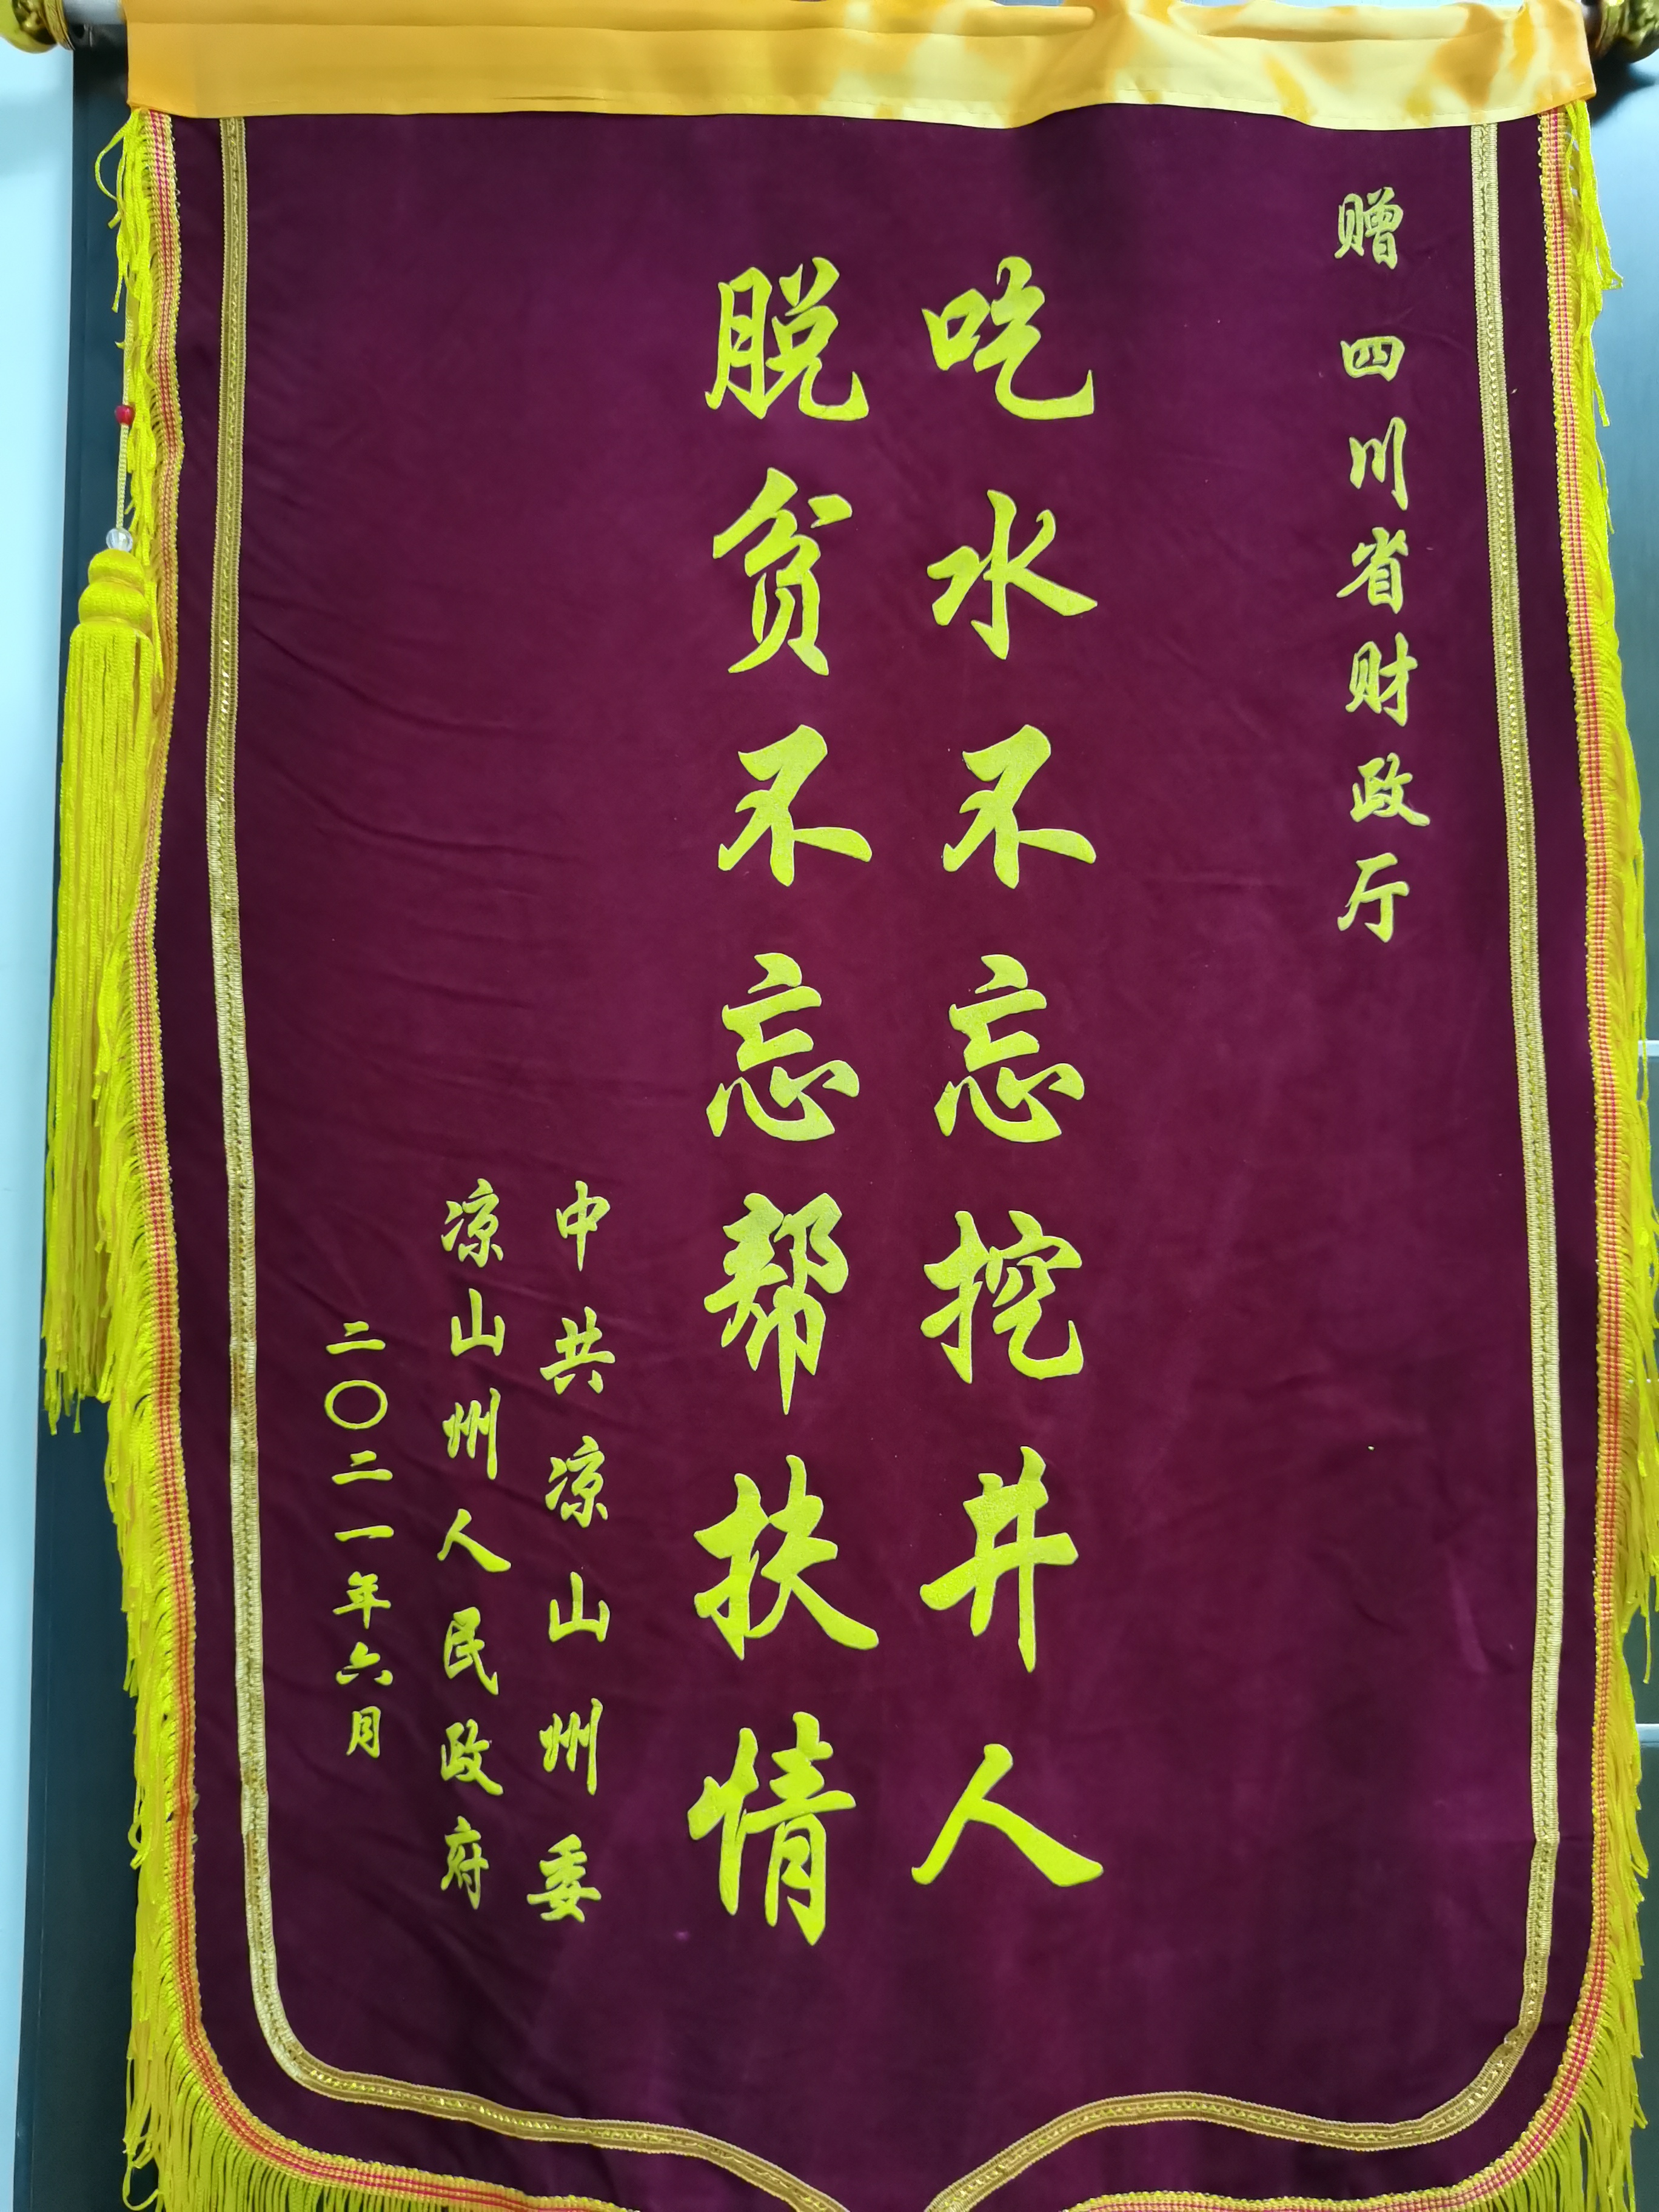 赠 四川省财政厅
吃水不忘挖井人
脱贫不忘帮扶情
中共凉山州委
凉山州人民政府
二〇二一年六月